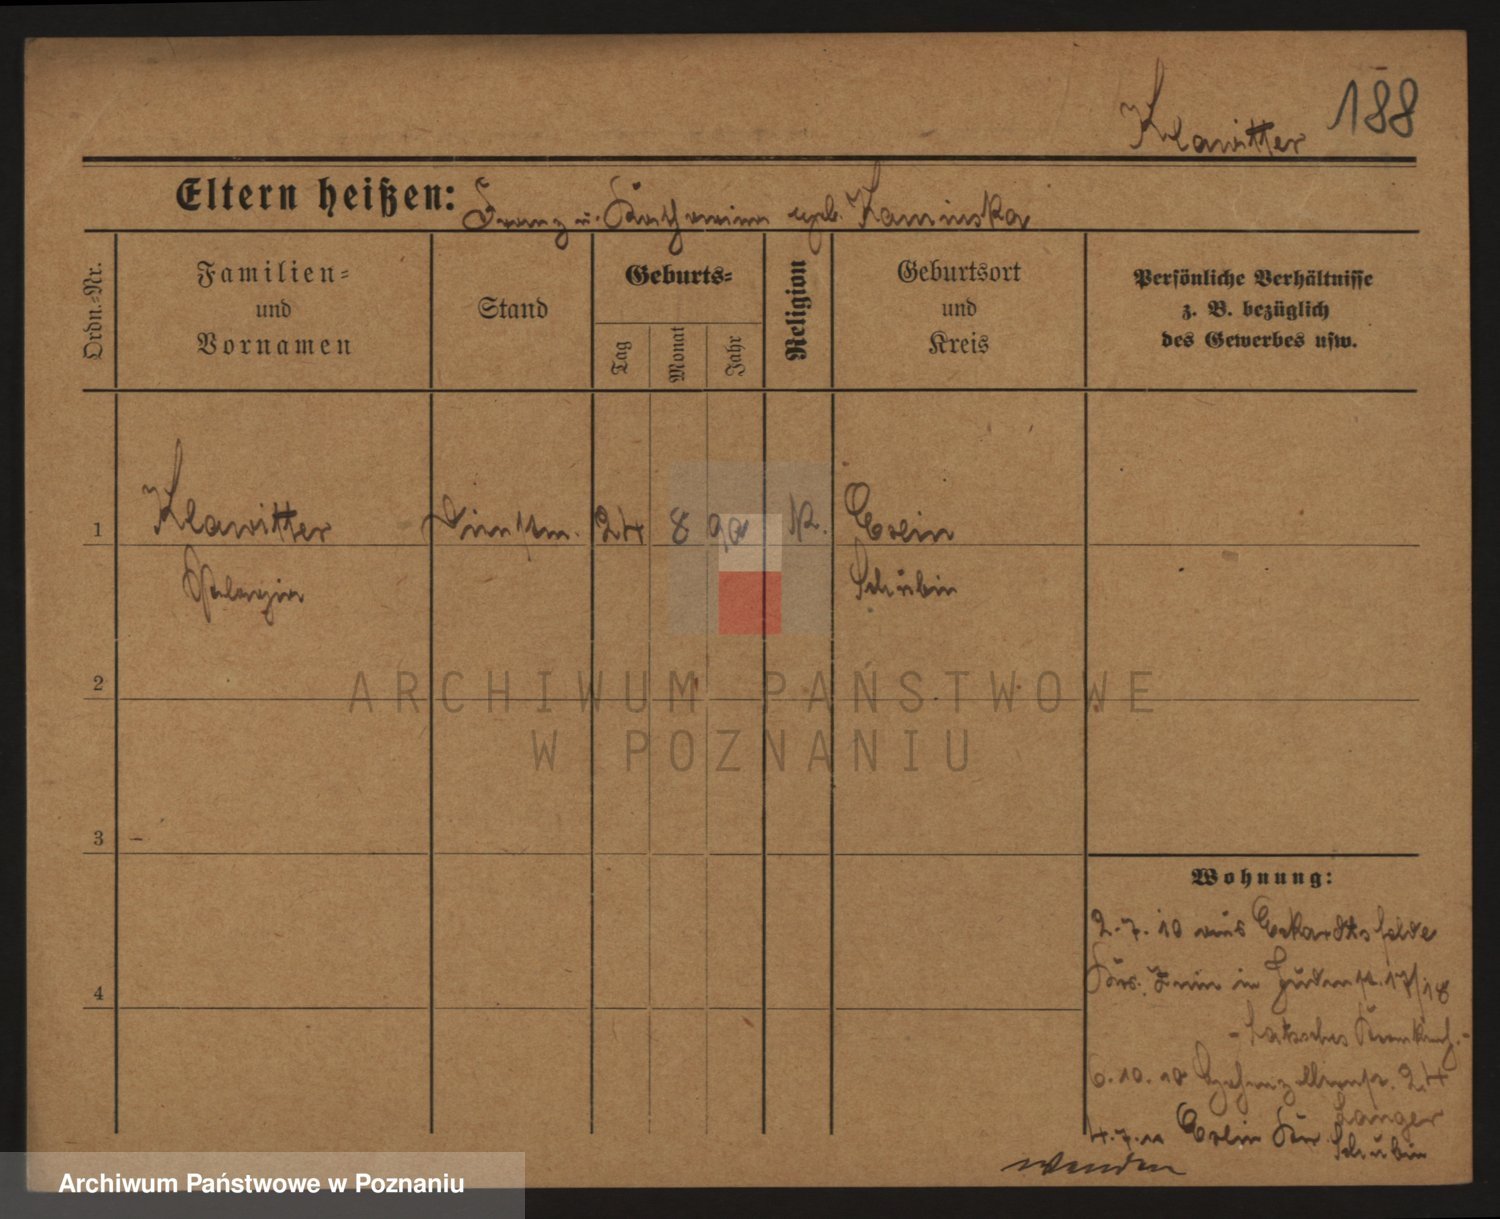 Klawitter 188
Eltern heißen: Franz u. Katharina geb. Kaminska
Ordn.-Nr.
Familien-
und
Vornamen
Stand
Geburts-
Tag
Monat
Jahr
Religion
Geburtsort
und
Kreis
Persönliche Verhältnisse
z. B. bezüglich
des Gewerbes usw.
1 Klawitter 24 8 90 K. Exin
Pelagia Schubin
2
3
4
Wohnung:
2.7.10 aus Eckardtsfelde
Krs. Znin in 17/18
6.10.10 Hohenzollernstr. 24
Langer
4.7.11 Exin Kr. Schubin
wenden
ARCHIWUM PAŃSTWOWE
W POZNANIU
Archiwum Państwowe w Poznaniu